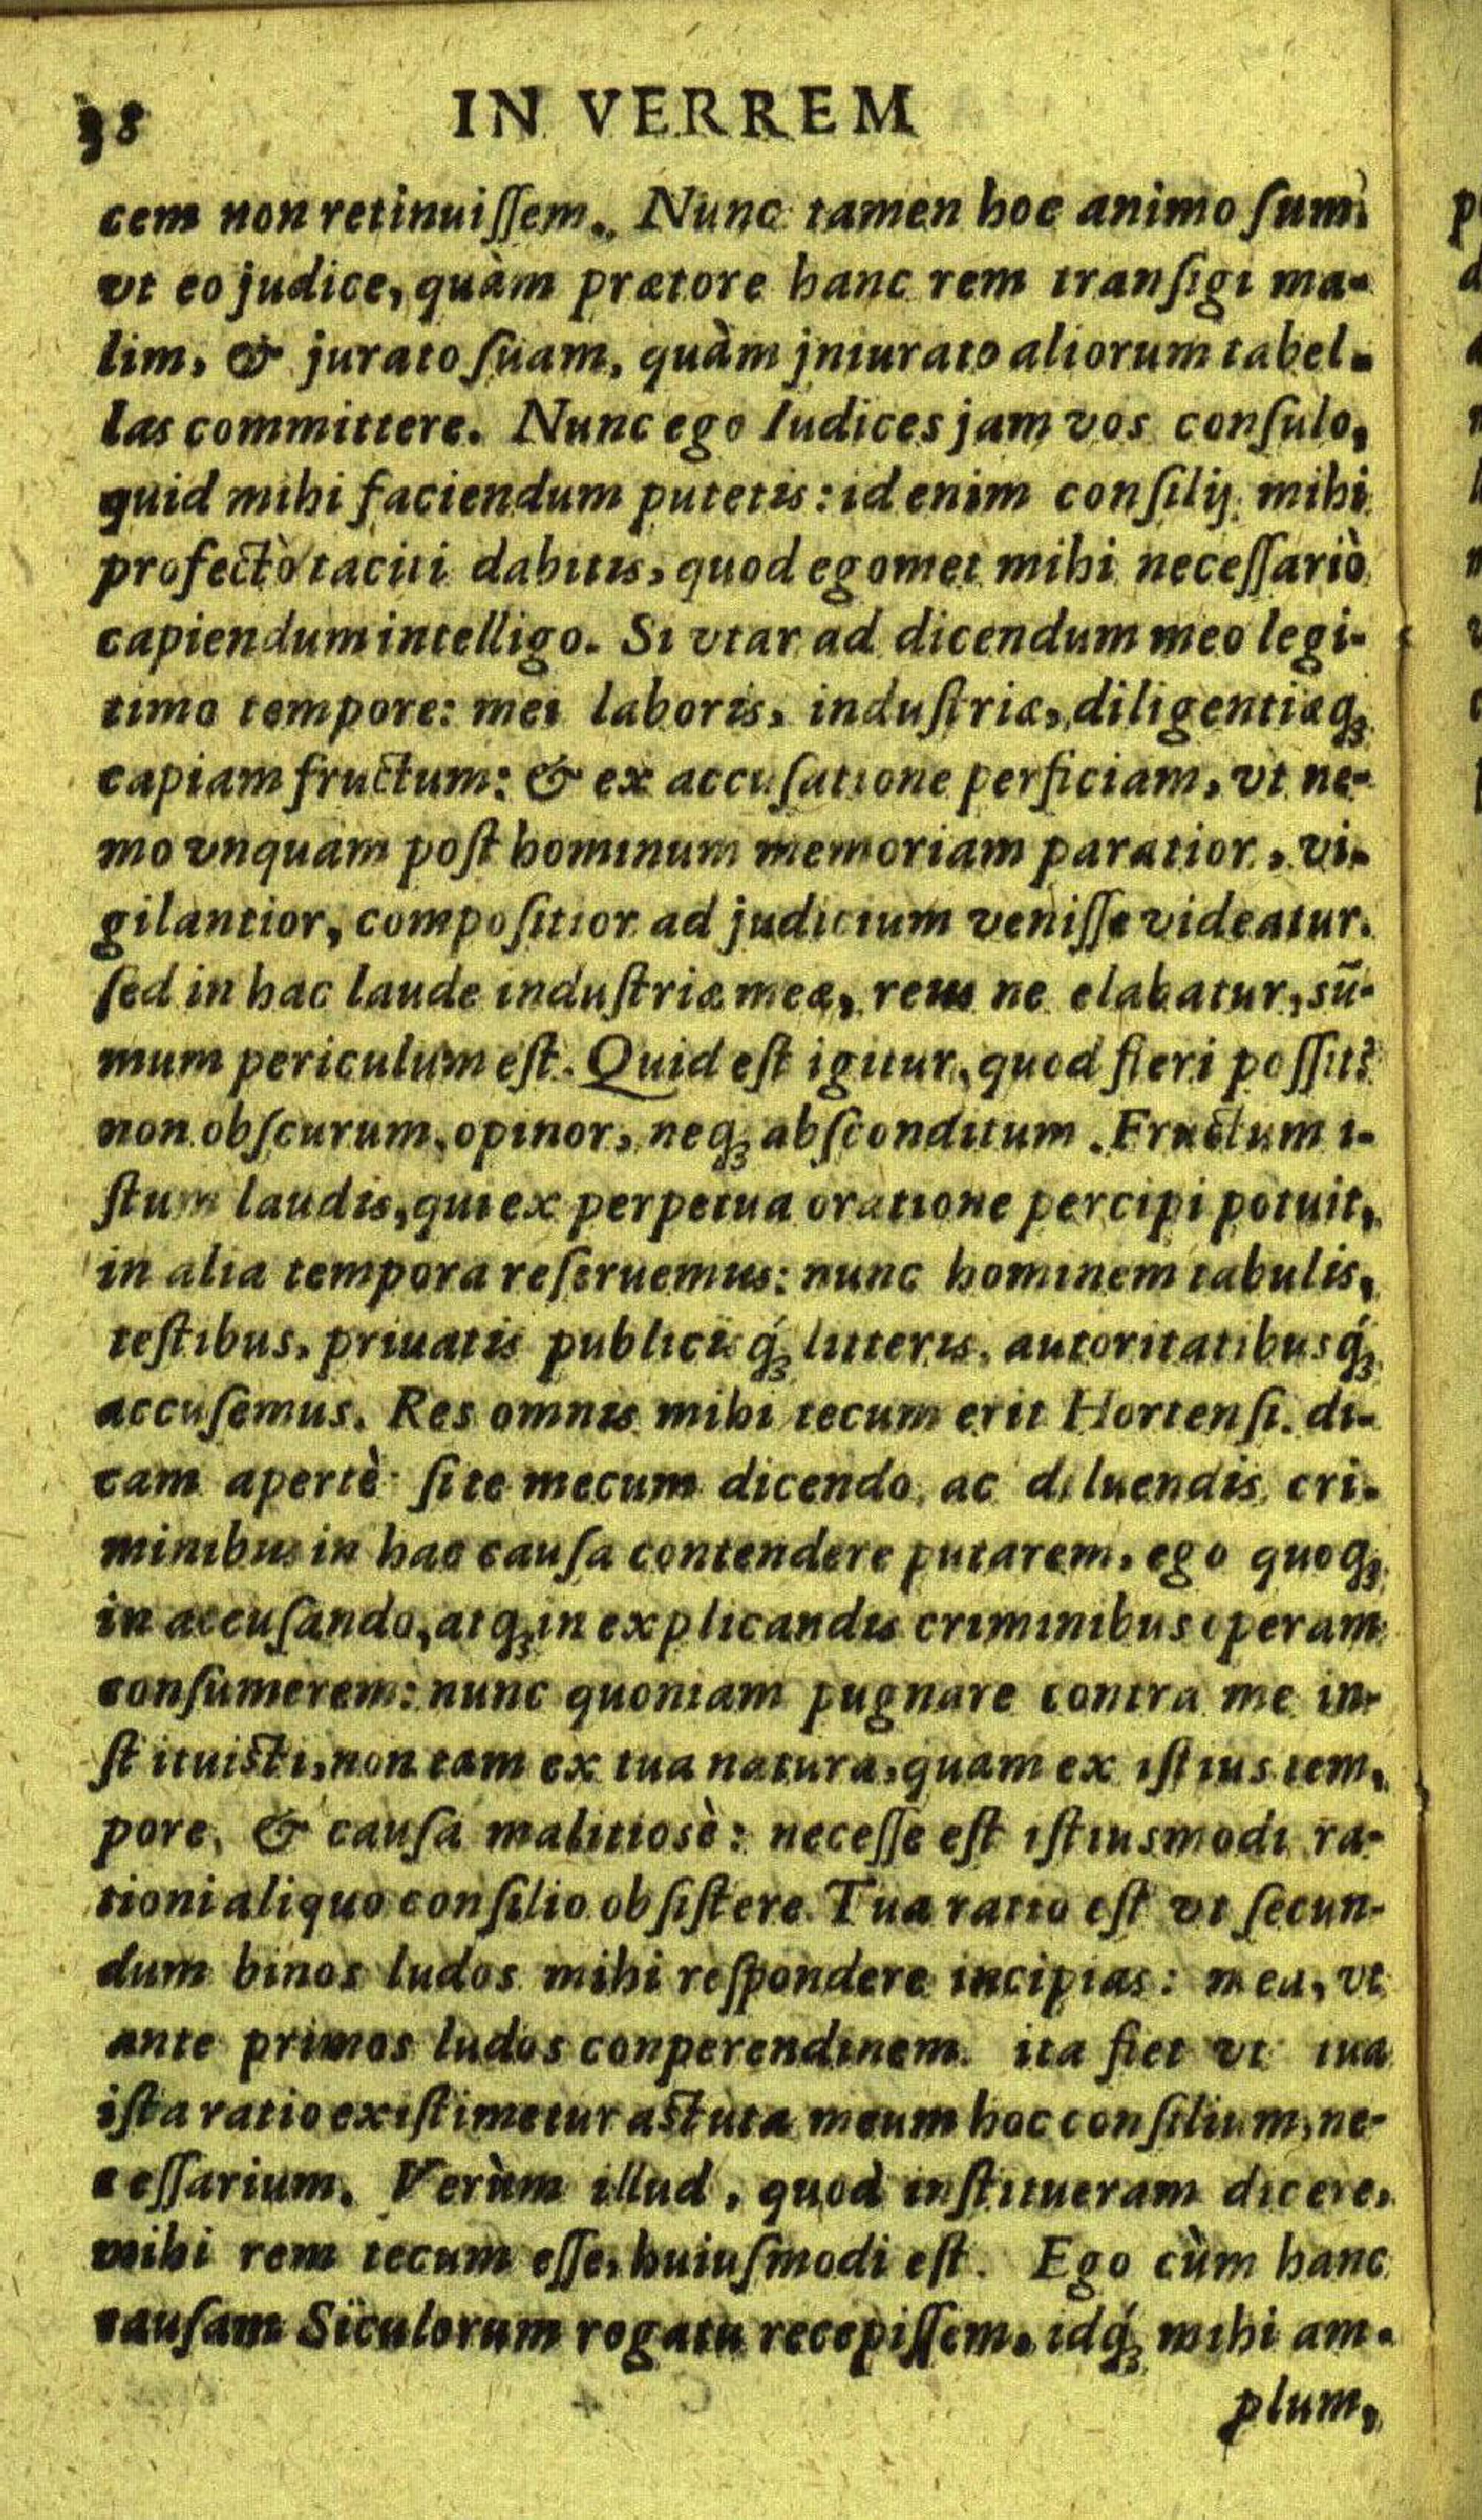 38 IN VERREM
cem non retinuiſſem. Nunc tamen hoc animo ſum:
vt eo judice, quàm prætore hanc rem tranſigi ma-
lim, & jurato ſuam, quàm jniurato aliorum tabel-
las committere. Nunc ego Iudices jam vos conſulo,
quid mihi faciendum putetis: id enim conſilij mihi
profectò taciti dabitis, quod egomet mihi neceſſariò
capiendum intelligo. Si vtar ad dicendum meo legi-
timo tempore: mei laboris, induſtriæ, diligentiæq́;
capiam fructum: & ex accuſatione perficiam, vt ne-
mo vnquam poſt hominum memoriam paratior, vi-
gilantior, compoſitior ad judicium veniſſe videatur.
ſed in hac laude induſtriæ meæ, reus ne elabatur, sū-
mum periculum eſt. Quid eſt igitur, quod fieri poſſit?
non obſcurum, opinor, neq; abſconditum. Fructum i-
ſtum laudis, qui ex perpetua oratione percipi potuit,
in alia tempora reſeruemus: nunc hominem tabulis,
teſtibus, priuatis publicisq́; litteris, autoritatibusq́;
accuſemus. Res omnis mihi tecum erit Hortenſi. di-
cam apertè ſi te mecum dicendo, ac diluendis cri-
minibus in hac cauſa contendere putarem, ego quoq;
in accuſando, atq; in explicandis criminibus operam
conſumerem: nunc quoniam pugnare contra me in-
ſtituisti, non tam ex tua natura, quam ex iſtius tem,
pore, & cauſa malitiosè: neceſſe eſt iſtiusmodi ra-
tioni aliquo conſilio obſiſtere. Tua ratio eſt vt ſecun-
dum binos ludos mihi reſpondere incipias: mea, vt
ante primos ludos conperendinem. ita fiet vt tua
iſta ratio exiſtimetur astuta meum hoc conſilium, ne-
ceſſarium. Verùm illud, quod inſtitueram dicere,
mihi rem tecum eſſe, huiuſmodi eſt. Ego cùm hanc
cauſam Siculorum rogatu recepiſſem, idq́; mihi am-
plum,